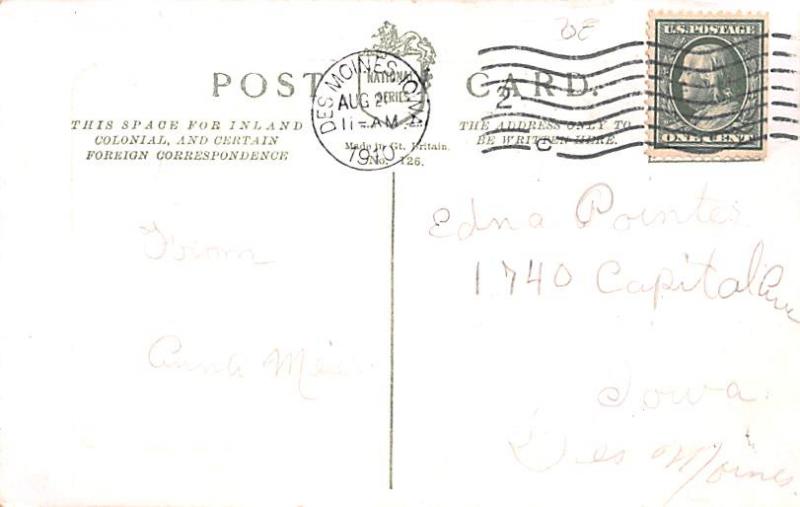 POST CARD.
NATIONAL
SERIES
THIS SPACE FOR INLAND
COLONIAL, AND CERTAIN
FOREIGN CORRESPONDENCE
Made in Gt. Britain.
No. 126.
THE ADDRESS ONLY TO
BE WRITTEN HERE.
DES MOINES, IOWA
AUG 2
11-AM
1910
2
C
U.S. POSTAGE
ONE CENT
From
Anna
Edna Pointer
1740 Capital Ave
Iowa
Des Moines.